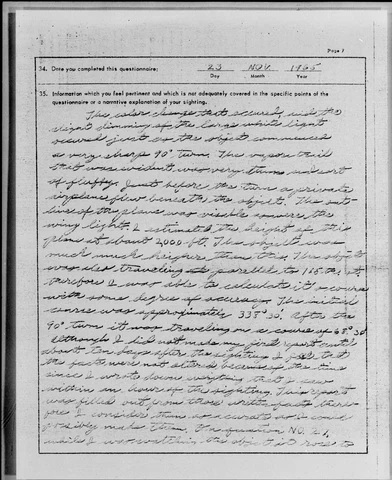 Page 8
34. Date you completed this questionnaire: 23 NOV 1965
Day Month Year
35. Information which you feel pertinent and which is not adequately covered in the specific points of the
questionnaire or a narrative explanation of your sighting.
The color change that occured, and the
slight dimming of the large white light
occured just as the object commenced
a very sharp 90° turn. The vapor trail
that was evident was very thin and sort
of fluffy. Just before the turn a private
airplane flew beneath the object. The out-
line of the plane was visible the
wing lights. I estimated the height of this
plane at about 2,000 ft. The object was
much much heigher than this. The object
was also traveling parallel to 185th st
therefore I was able to calculate it's course
with some degree of accuracy. The initial
course was approximately 335° 30'. After the
90° turn it was traveling on a course of 65° 30'
Although I did not make my first report until
about ten days after the sighting I feel that
the facts were not altered because of the time
since I wrote down everything that I saw
within an hour of the sighting. This report
was filled out from those written facts there-
fore I consider them as accurate as I could
possibly make them. In question NO. 21,
while I was watching the object it rose to